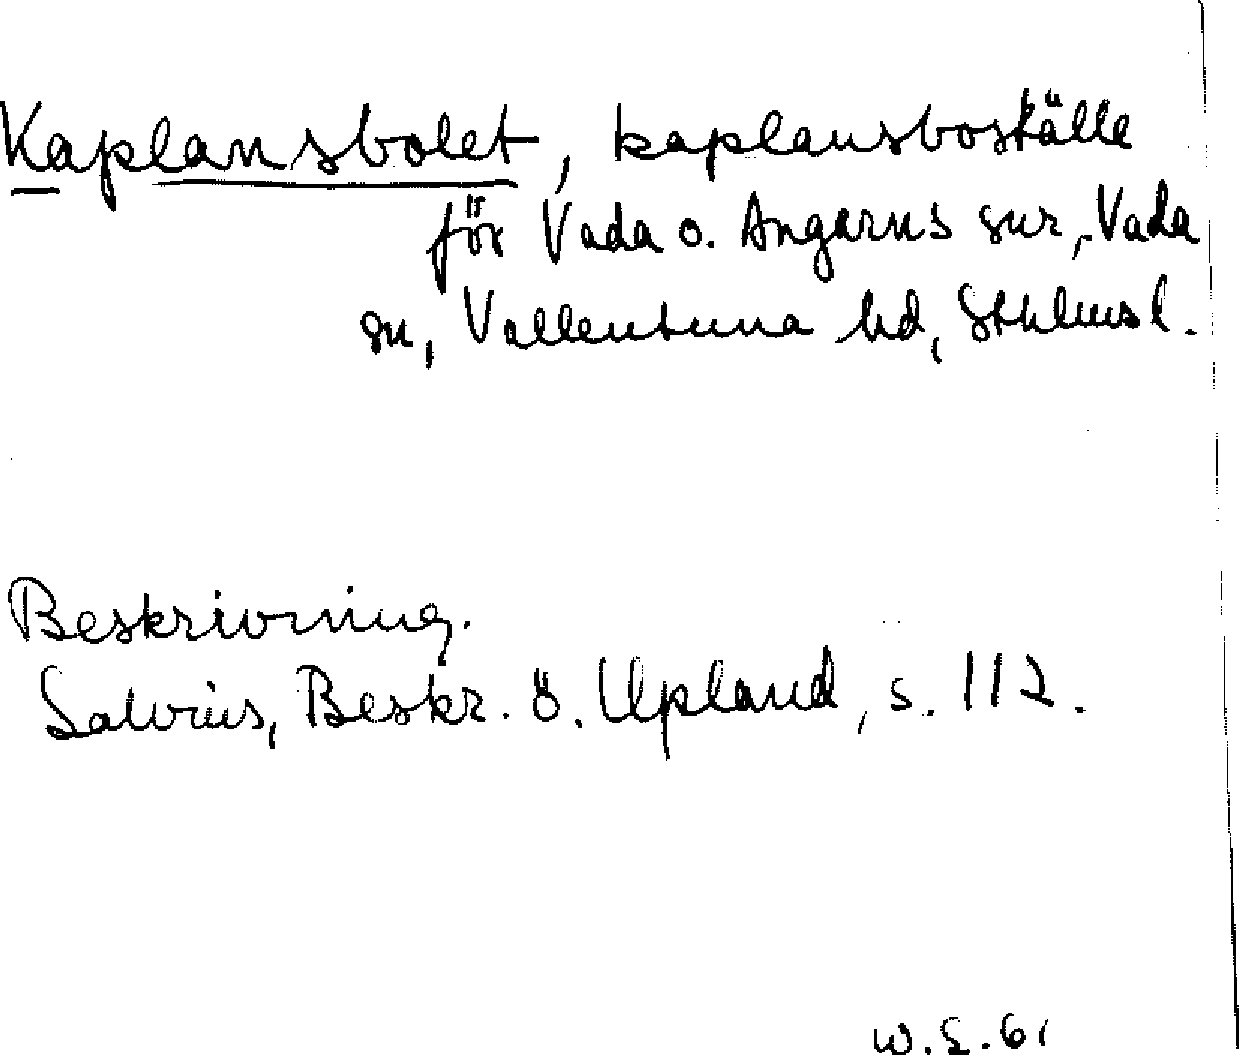 Kaplansbolet, kaplansboställe
för Vada o. Angarns snr, Vada
sn, Vallentuna hd, Sthlmsl.
Beskrivning.
Salvius, Beskr. ö. Upland, s. 112.
W.S.61